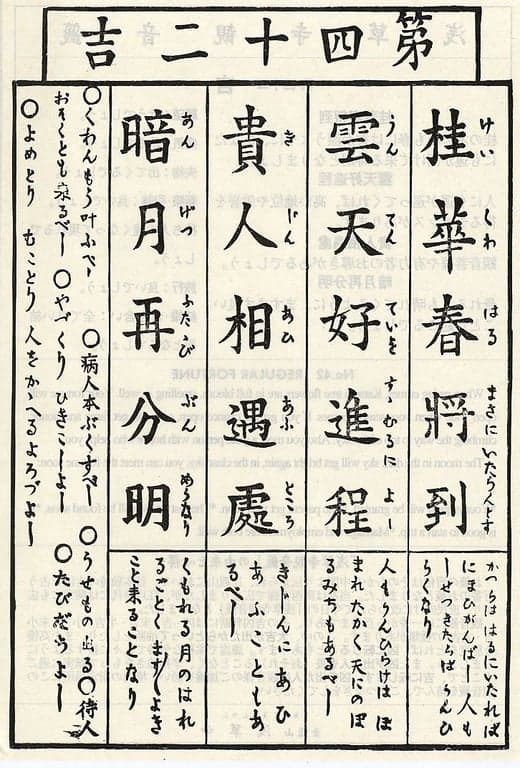 第四十二吉
桂華春將到
けいくわはるまさにいたらんす
かつらははるにいたれば
にほひかんばし人も
ときたらばうんひ
らくなり
雲天好進程
うんてんていをすゝむるによし
人もうんひらけはほ
まれたかく天にのぼ
るみちもあるべし
貴人相遇處
きじんあひあふところ
きじんにあひ
あふこともあ
るべし
暗月再分明
あんげつふたゝびぶんめうなり
くもれる月のはれ
るごとくますますよき
こと来ることなり
○くわんもう叶ふべし ○病人本ぶくすべし ○うせもの出る○待人
おそくとも来るべし ○やづくりひきこしよし ○たびだちよし
○よめとりむことり人をかゝへるよろづよし